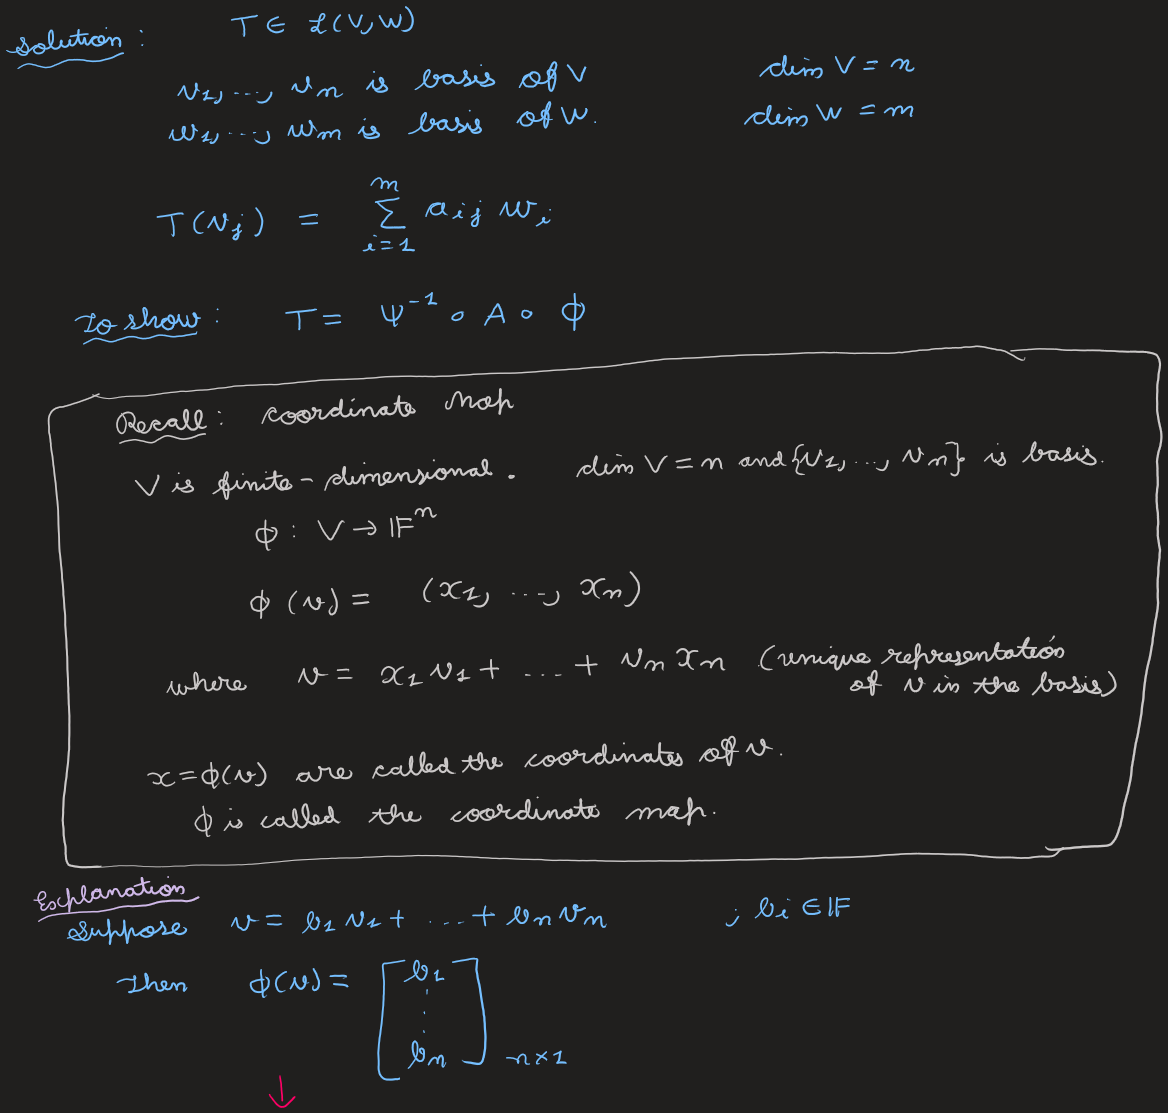 Solution: T ∈ ℒ(V, W)
v₁, ..., vₙ is basis of V dim V = n
w₁, ..., wₘ is basis of W. dim W = m
T(vⱼ) = ∑_{i=1}^{m} aᵢⱼ wᵢ
To show: T = Ψ⁻¹ ∘ A ∘ ϕ
Recall: coordinate Map
V is finite-dimensional. dim V = n and {v₁, ..., vₙ} is basis.
ϕ : V → 𝔽ⁿ
ϕ (v) = (x₁, ..., xₙ)
where v = x₁ v₁ + ... + vₙ xₙ (unique representation
of v in the basis)
x = ϕ(v) are called the coordinates of v.
ϕ is called the coordinate map.
Explanation
Suppose v = b₁ v₁ + ... + bₙ vₙ ; bᵢ ∈ 𝔽
Then ϕ(v) = [b₁ ⋮ bₙ] n×1